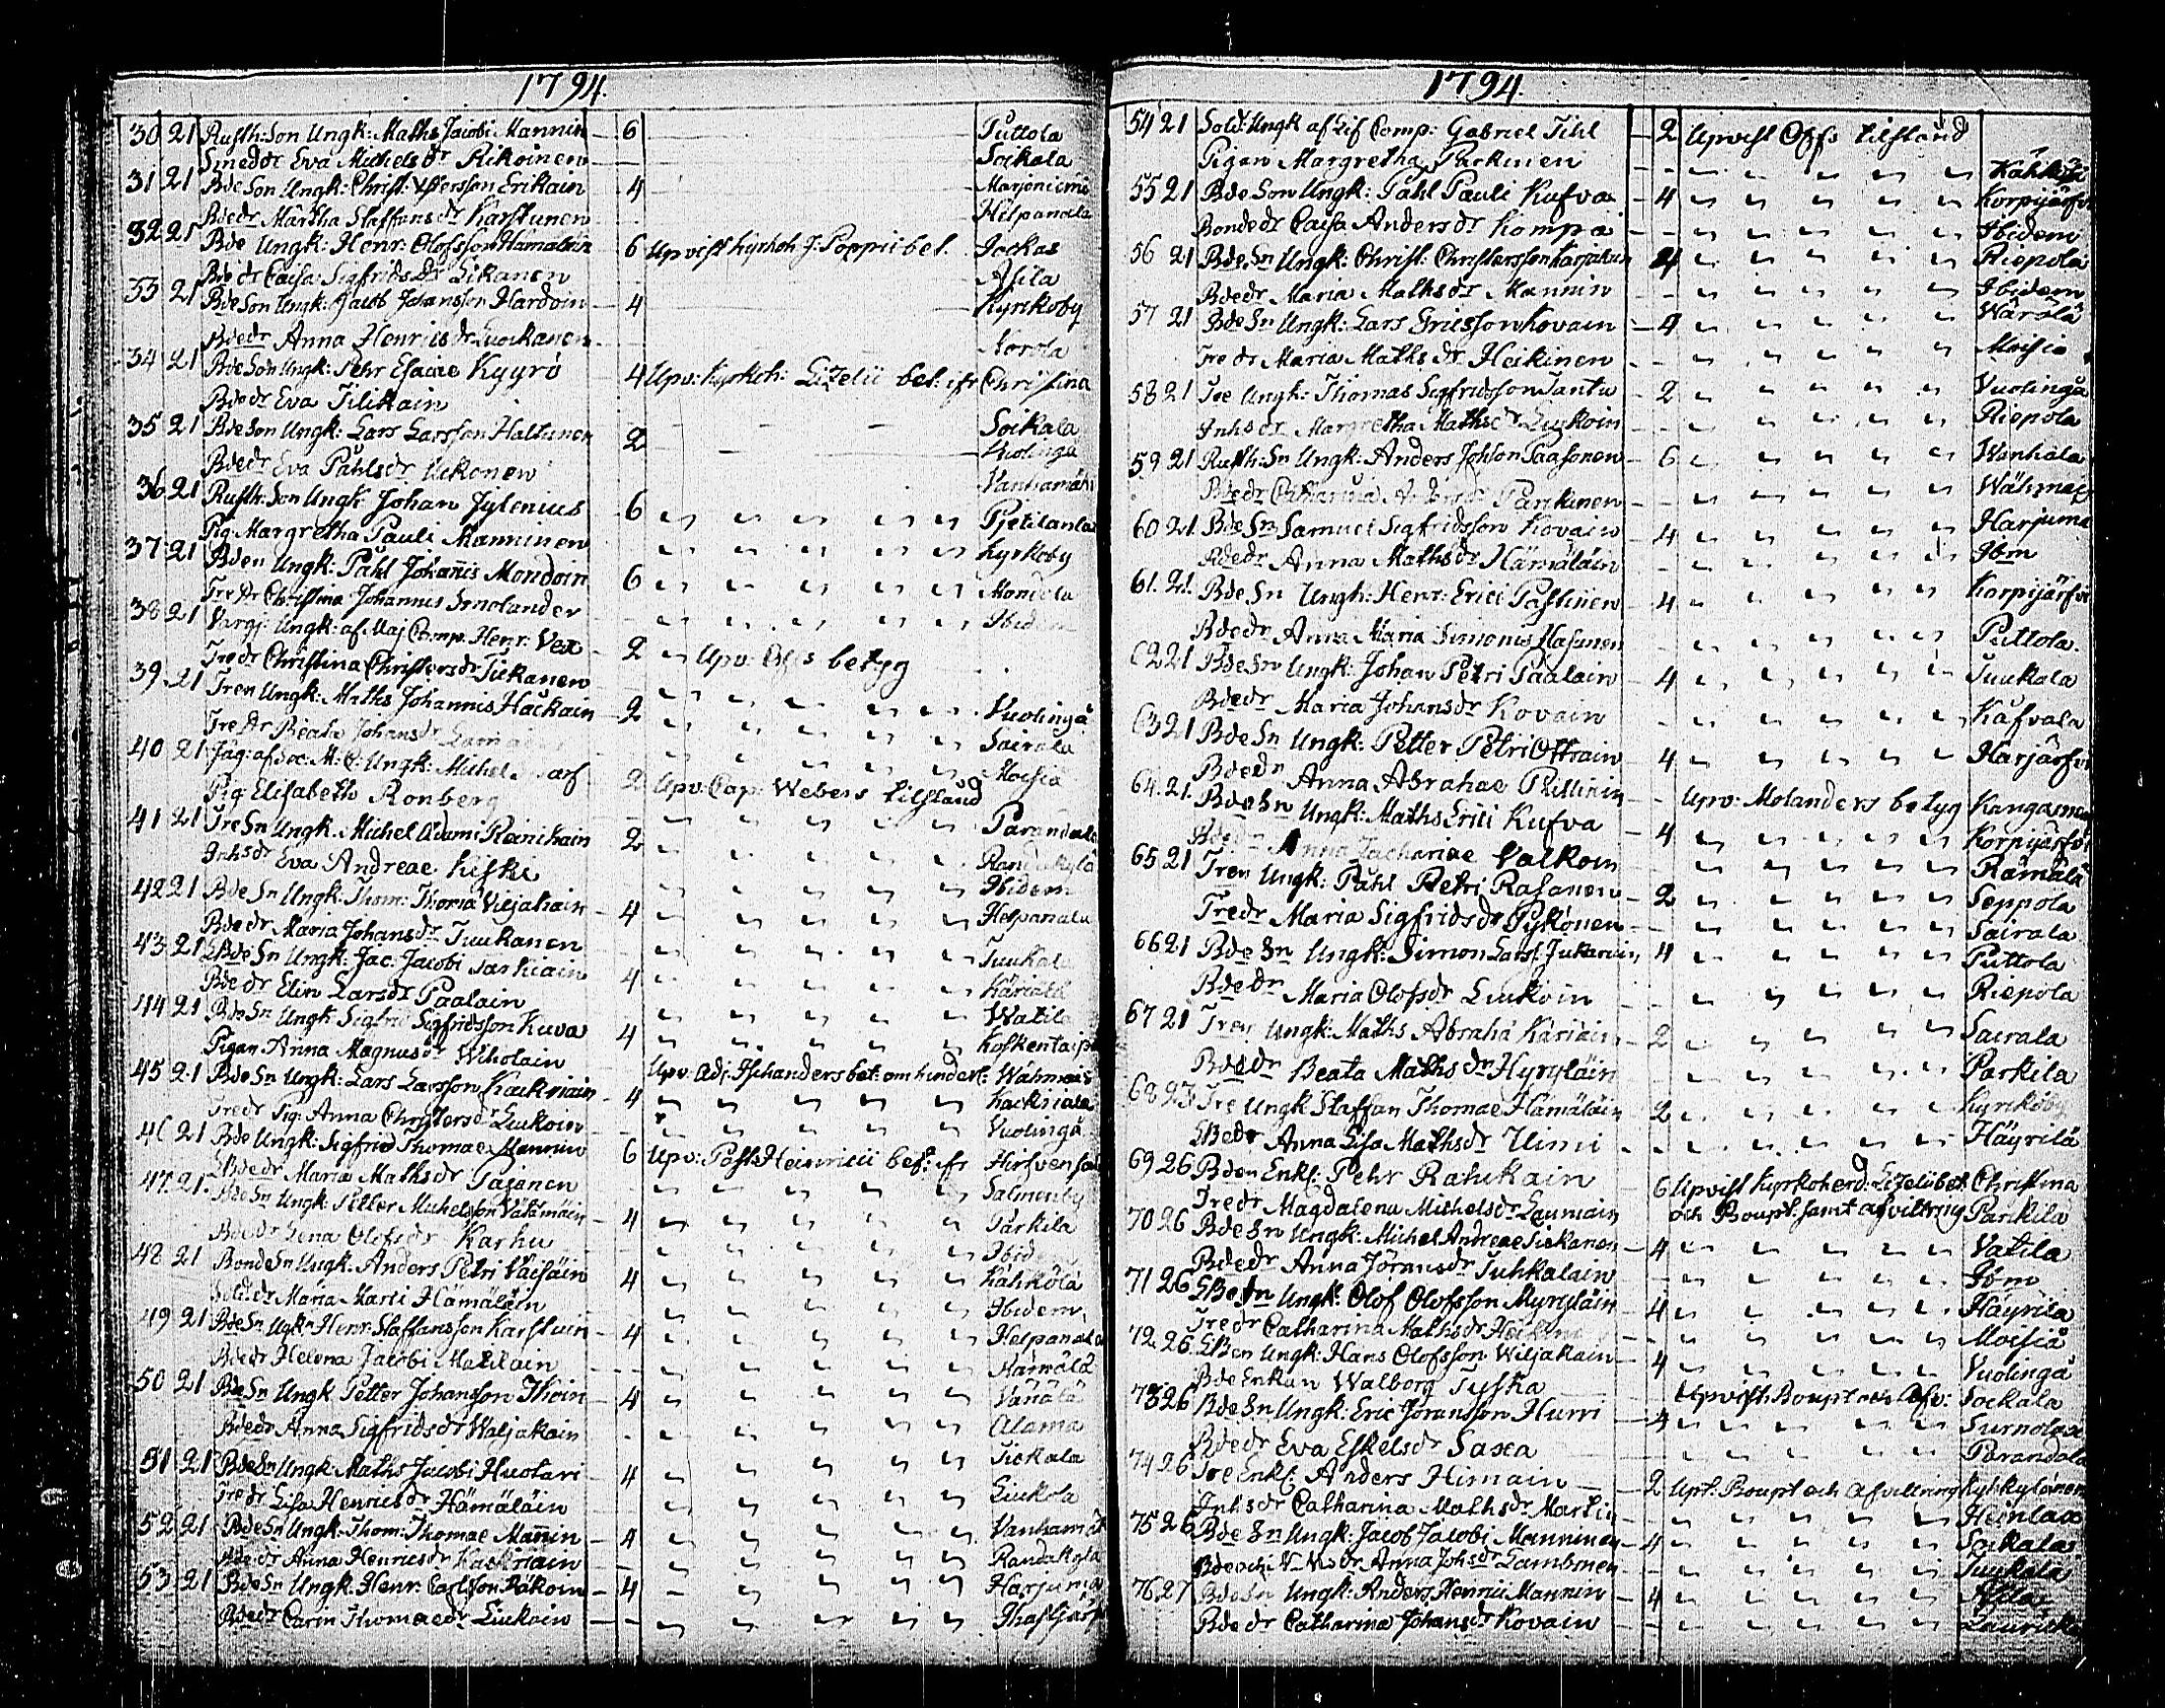 1794.
30 21 Rusth: Son Ungk: Maths Jacobi Mannin — 6 Puttola
Smeddr Eva Michelsdr Rikoinen — Soikala
31 21 Bde Son Ungk: Christ: Persson Erikain 4 Marjoniemi
Bdedr Märtha Staffansdr Karstunen — Helpanala
32 21 Bde Ungk: Henr: Olofsson Hämäläin 6 Upvist kyrkoh J: Poppii bet. Jockas
Bdedr Caisa Sigfridsdr Likanen Asila
33 21 Bde Son Ungk: Jacob Johansson Hardoin — 4 Kyrkoby
Bdedr Anna Henricsdr Luockanen Norola
34 21 Bde Son Ungk: Pehr Esaiae Kyyrö 4 Upv: kyrkoh: Lizelii bet: ifr Christina
Bdedr Eva Tilikain Soikala
35 21 Bde Son Ungk: Lars Larsson Haltunen 2 Vuolinga
Bdedr Eva Påhlsdr Ukonen Vanhamäki
36 21 Rusth: Son Ungk Johan Jylenius 6 Pjetilanla
Pig. Margretha Pauli Manninen Kyrkoby
37 21 Bden Ungk: Påhl Johannis Mondoin 6 Mondola
Tredr Christina Johannis Smolander Ibidem
38 21 Vargj: Ungk: af Maj Comp. Henr: Vex — 2 Upv: Ofs betyg
Tredr Christina Christersdr Tiikanen
39 21 Tren Ungk: Maths Johannis Häckäin — 2 Vuolinga
Tredr Beata Johansdr Sairala
40 21 Jäg: af Sav: M: C: Ungk: Michel 2 Upv: Cap: Webers tilstånd Moisia
Pig Elisabeth Ronberg
41 21 Tre Sn Ungk. Michel Adami Rainikain 2 Parandala
Inhsdr Eva Andreae Kiski Randakylä
42 21 Bde Sn Ungk: Thom: Thomæ Viljakain — 4 Ibidem
Bdedr Maria Johansdr Tuukanen Helpanala
43 21 Bde Sn Ungk: Jac: Jacobi Särkiäin 4 Tuukala
Bdedr Elin Larsdr Paalain Käriälä
44 21 Bde Sn Ungk Sigfrid Sigfridsson Kuva 4 Watila
Pigan Anna Magnusdr Wiholain Koskentaipa
45 21 Bde Sn Ungk: Lars Larsson Kackriain — 4 Upv: Adj: Ischanders bet: om hinderl: Wähmais
Tredr Pig: Anna Christersdr Liukoin Kackriala
46 21 Bde Ungk: Sigfrid Thomae Mannin 6 Upv: Past: Heinricii bet: ifr Hirfvensal
Bdedr Maria Mathsdr Pajanen Salmenby
47 21 Bde Sn Ungk: Petter Michelsson Välämäin — 4 Parkila
Bdedr Lena Olofsdr Karhu Ibidem
48 21 Bonde Sn Ungk: Anders Petri Väisäin 4 Kähkölä
Solddr Maria Marti Hämäläin Ibidem
49 21 Bde Sn Ugkn Henr: Staffansson Karstuin — 4 Helpanala
Bdedr Helena Jacobi Matilain Hämälä
50 21 Bde Sn Ungk Petter Johansson Ihoin — 4 Vanälä
Bdedr Anna Sigfridsdr Waljakain Alama
51 21 Bde Sn Ungk: Maths Jacobi Huotari — 4 Tiekala
Tredr Lisa Henricsdr Hämäläin Liukola
52 21 Bde Sn Ungk: Thom: Thomae Mannin — 4 Vanhamäk
Bdedr Anna Henricsdr Kackriain Randakylä
53 21 Bde Sn Ungk: Henr: Carlsson Räkoin — 4 Harjuma
Bdedr Carin Thomaedr Liukoin
1794
54 21 Sold: Ungk af Lif Comp: Gabriel Tihl — 2 Upvist Ofs tilstånd
Pigan Margretha Parkinen Kähkölä
55 21 Bde Son Ungk: Påhl Pauli Kufva 4 Korpijärfvi
Bondedr Caisa Andersdr Kompa Ibidem
56 21 Bde Sn Ungk: Christ: Christersson Karjalain 4 Riepola
Bdedr Maria Mathsdr Mannin Ibidem
57 21 Bde Sn Ungk: Lars Ericsson Kovain — 4 Wärälä
Tredr Maria Mathsdr Heikinen Moisia
58 21 Tre Ungk: Thomas Sigfridsson Tantu 2 Vuolinga
Inhsdr Margretha Mathsdr Liukoin Riepola
59 21 Rusth: Sn Ungk: Anders Johson Paasonen — 6 Wanhala
Bdedr Catharina Andersdr Parkinen Wähmais
60 21 Bde Sn Samuel Sigfridsson Kovain — 4 Harjuma
Bdedr Anna Mathsdr Hämäläin Ibm
61. 21. Bde Sn Ungk: Henr: Erici Pastinen — 4 Korpijärfvi
Bdedr Anna Maria Simonis Hasunen Puttola.
62 21 Bde Sn Ungk: Johan Petri Paalain — 4 Tuukala
Bdedr Maria Johansdr Kovain Käfvala
63 21 Bde Sn Ungk: Petter Petri Ottrain 4 Harjärfvi
Bdedr Anna Abrahae Pullinin Upv: Molanders betyg Kangasniemi
64. 21. Bde Sn Ungk: Maths Erici Kufva — 4 Korpijärfvi
Bdedr Anna Zachariae Valkoin Rämälä
65 21 Tren Ungk: Påhl Petri Rasanen — 2 Seppola
Tredr Maria Sigfridsdr Pykönen — Sairala
66 21 Bde Sn Ungk: Simon Lars: Jukarain 4 Puttola
Bdedr Maria Olofsdr Liukoin Riepola
67 21 Tren Ungk: Maths Abrahæ Käriäin — 2 Sairala
Bdedr Beata Mathsdr Hyryläin Parkila
68 23 Tre Ungk Staffan Thomae Hämäläin 2 Kyrkoby
Bdedr Anna Lisa Mathsdr Ilimi Häyrilä
69 26 Bden Enkl: Pehr Rahukain 6 Upvist Kyrkoherd: Lizelii bet. Christina
Tredr Magdalena Michelsdr Launiain och Boupt: samt afvittring Parkila
70 26 Bde Sn Ungk: Michel Andreae Siekanen — 4 Vatila
Bdedr Anna Jöransdr Tuhkalain Ibm
71 26 Bde Sn Ungk: Olof Olofsson Myryläin — 4 Häyrilä
Tredr Catharina Mathsdr Moisiå
72 26 Bden Ungk: Hans Olofsson Wiljakain — 4 Vuolinga
Bde Enkan Walborg Tyska Upvist Boupt och Afv: Sockala
73 26 Bde Sn Ungk: Eric Jöransson Hurri 4 Surnolax
Bdedr Eva Eskelsdr Saxa Parandala
74 26 Tre Enkl: Anders Himain — 2 Upt: Boupt och Afvittring Kyhkylänen
Inhsdr Catharina Mathsdr Martii Heinlax
75 26 Bde Sn Ungk: Jacob Jacobi Manninen — 4 Soikala
Bde och Nmsdr Anna Johsdr Lambinen Tuukala
76 27 Bde Sn Ungk: Anders Henrici Mannin — 4 Asila
Bdedr Catharina Johansdr Kovain